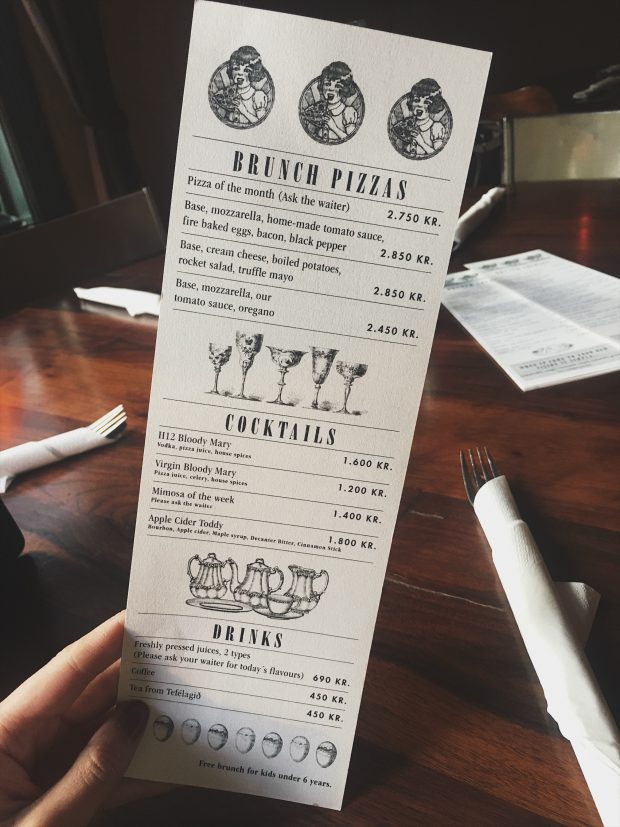 BRUNCH PIZZAS
Pizza of the month (Ask the waiter)
2.750 KR.
Base, mozzarella, home-made tomato sauce,
fire baked eggs, bacon, black pepper
2.850 KR.
Base, cream cheese, boiled potatoes,
rocket salad, truffle mayo
2.850 KR.
Base, mozzarella, our
tomato sauce, oregano
2.450 KR.
COCKTAILS
H12 Bloody Mary
1.600 KR.
Vodka, pizza juice, house spices
Virgin Bloody Mary
1.200 KR.
Pizza juice, celery, house spices
Mimosa of the week
1.400 KR.
Please ask the waiter
Apple Cider Toddy
1.800 KR.
Bourbon, Apple cider, Maple syrup, Decanter Bitter, Cinnamon Stick
DRINKS
Freshly pressed juices, 2 types
(Please ask your waiter for today´s flavours) 690 KR.
Coffee
450 KR.
Tea from Tefélagið
450 KR.
Free brunch for kids under 6 years.